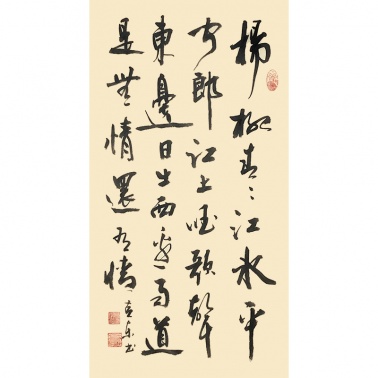 楊柳青〻江水平
聞郎江上唱歌聲
東邊日出西邊雨道
是無情還有情